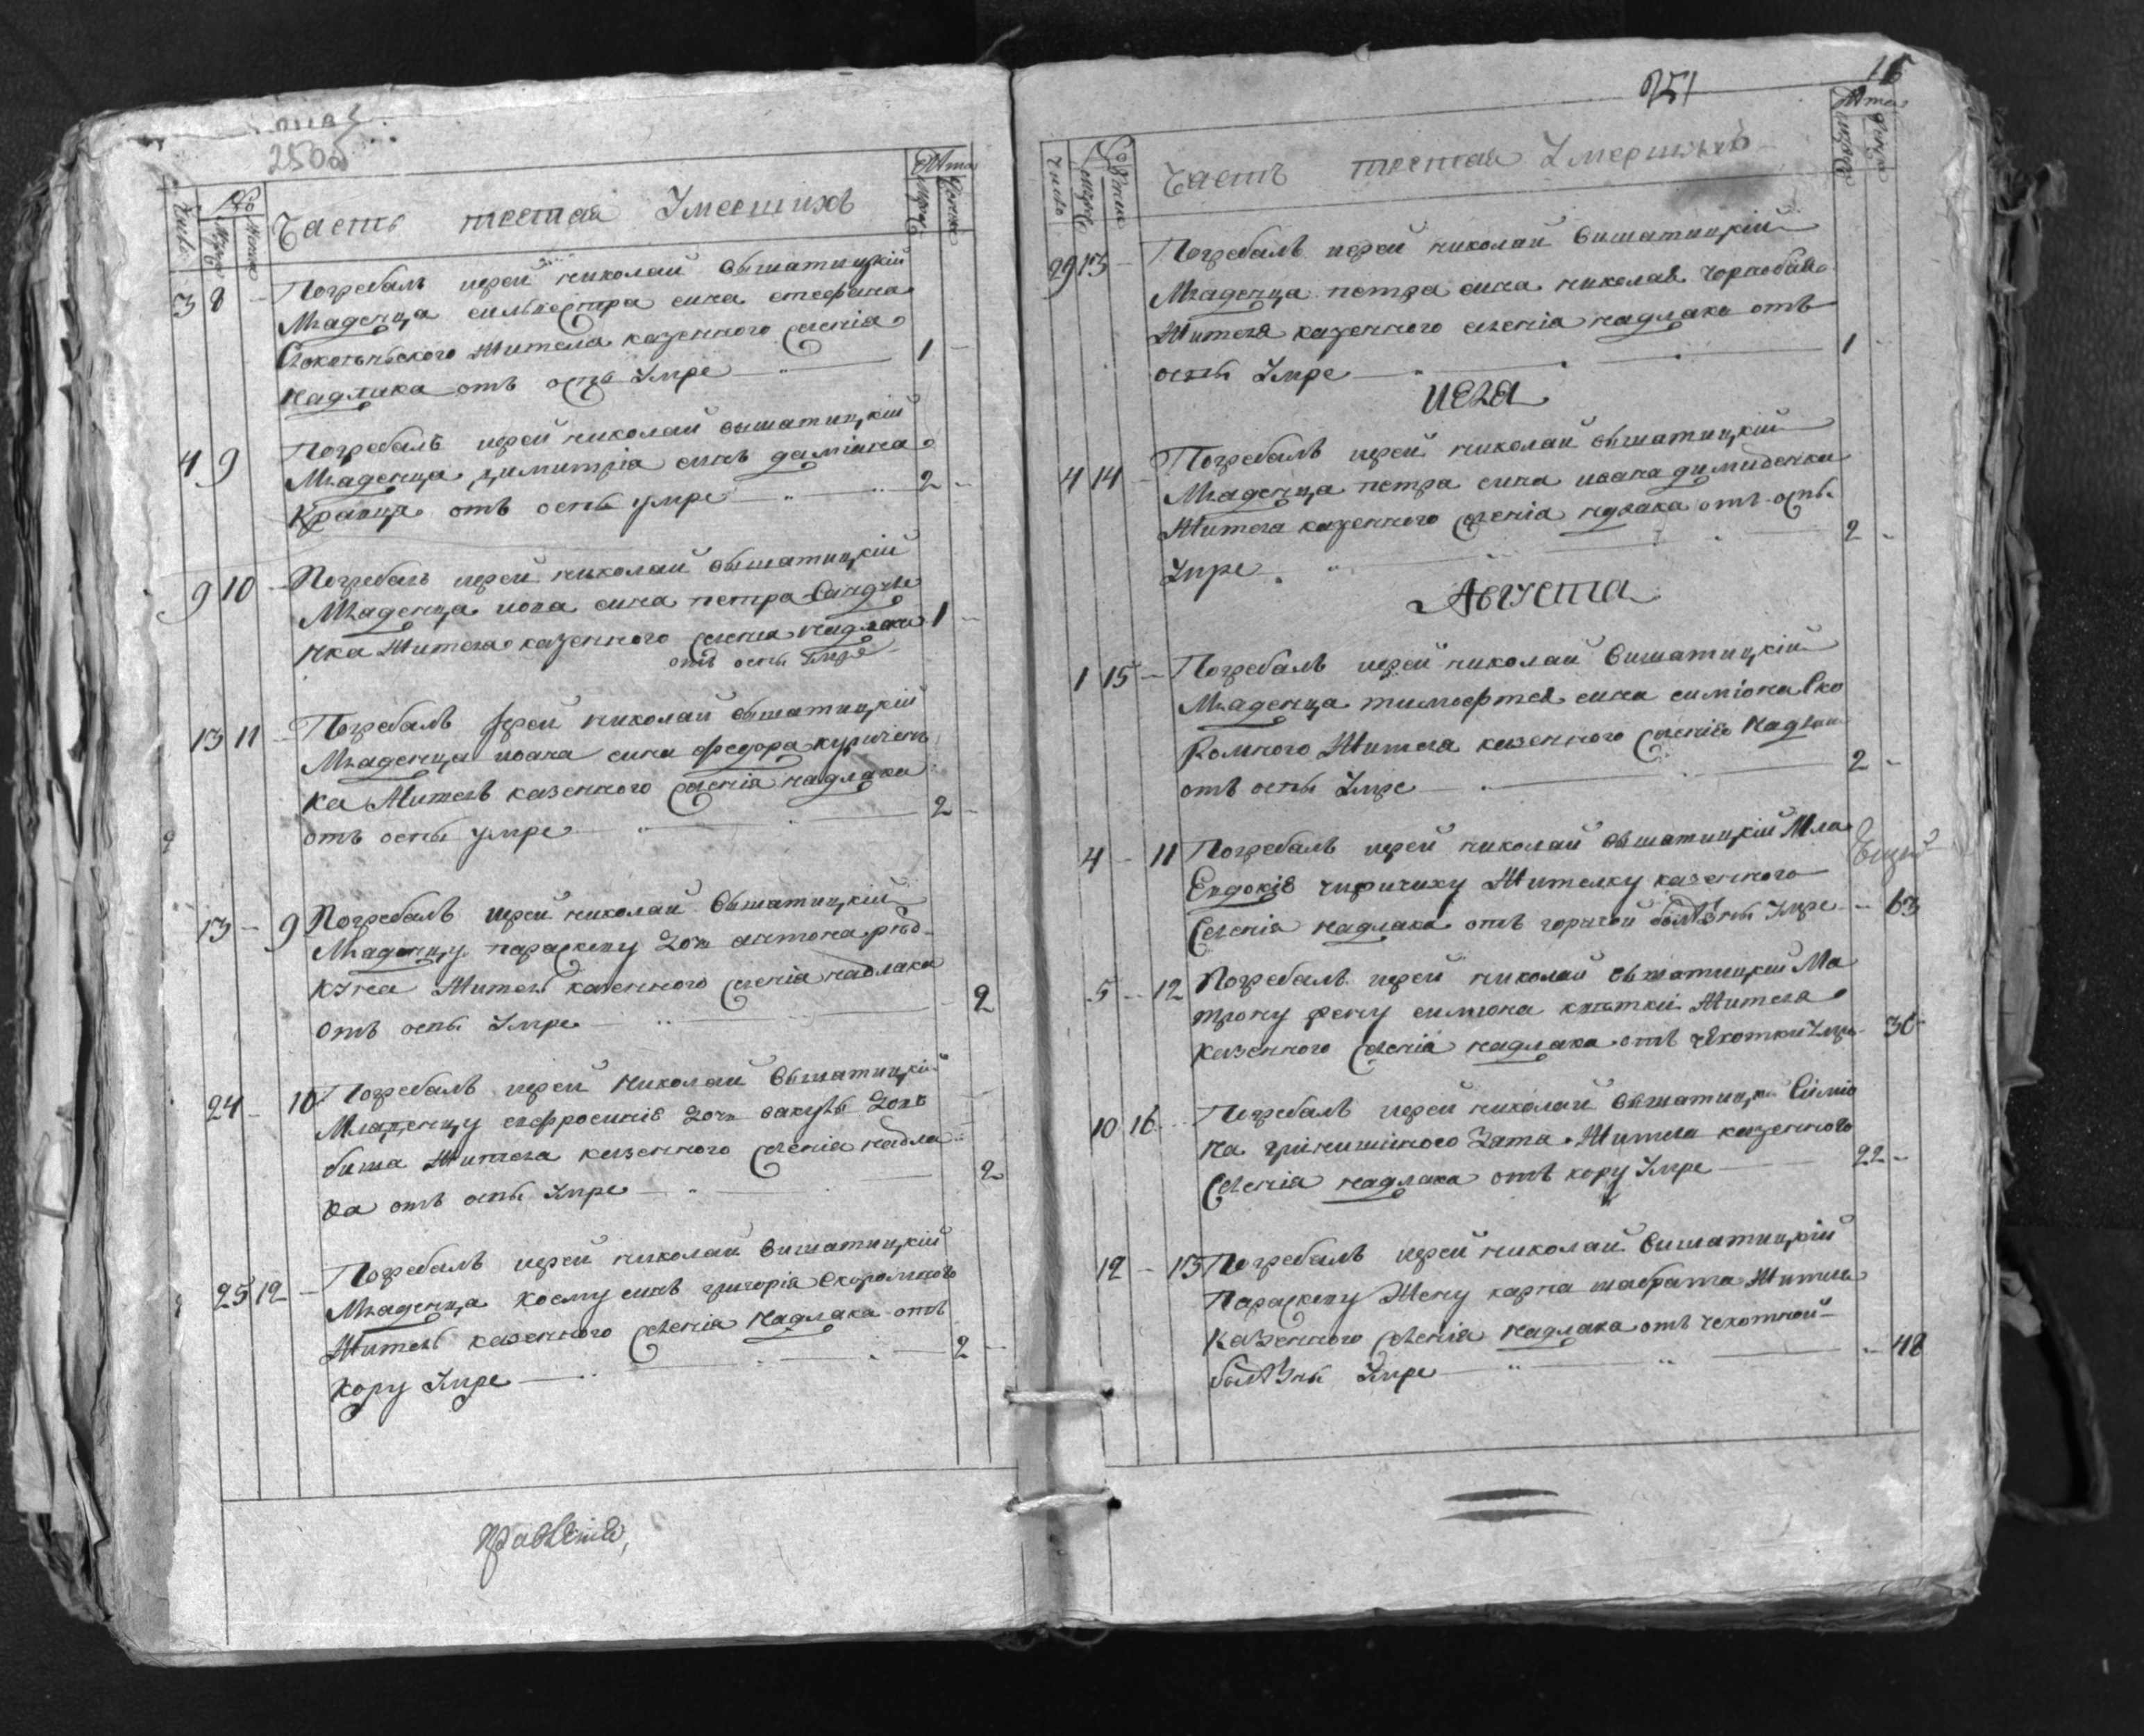 250об
Число
№
Мужес
Женс
Часть третая Умершихъ
Лѣта
Мужес
Женск
3 8 - Погребалъ иерей николай вышатицкій
Младенца сильвестра сина стефана
Сокольвского жителя казенного селенія
надлака отъ оспы умре - 1 -
4 9 Погребалъ иерей николай вышатицкій
Младенца димитріа синъ даміана
Кравца отъ оспы умре - 2 -
9 10 - Погребалъ иерей николай вышатицкій
Младенца иоана сина петра
нка жителя казенного селения надлака 1 -
отъ оспы умре
13 11 - Погребалъ иерей николай вышатицкій
Младенца иоана сина федора куричен
ка жителѣ казенного селенія надлака
отъ оспы умре - 2 -
13 - 9 Погребалъ иерей николай вышатицкій
Младенцу параскеву дочь антона рѣд
кина жителѣ казенного селенія надлака
отъ оспы умре - 2
24 - 10 Погребалъ иерей николай вышатицкій
Младенцу евфросинію дочь вакулы
биша жителя казенного селенія надла
ка отъ оспы умре - 2
25 12 - Погребалъ иерей николай вишатицкій
Младенца козму синъ григоріа скоромного
жителѣ казенного селенія надлака отъ
кору умре - 2 -
251
15
Число
№
Мужес
Женс
Часть третая Умершихъ
Лѣта
29 13 - Погребалъ иерей николай вишатицкій
Младенца петра сина николая чорнобая
жителя казенного селенія надлака отъ
оспы умре - 1 -
июля
4 14 - Погребалъ иерей николай вышатицкій
Младенца петра сина иоана димиденка
жителя казенного селенія надлака отъ оспы
умре - 2 -
Августа
1 15 - Погребалъ иерей николай вишатицкій
Младенца тимофтея сина симіона Ско
ромного жителя казенного селенія надлака
отъ оспы умре - 2 -
4 - 11 Погребалъ иерей николай вышатицкій Мла
Евдокію чиричиху жителку казенного
селенія надлака отъ горячой болѣзны умре - 63
5 - 12 Погребалъ иерей николай вышатицкій Ма
трону жену симиона жителя
казенного селенія надлака отъ чехотки умре 30
10 16 - Погребалъ иерей николай вышатицкій Симио
на зятя жителя казенного
селенія надлака отъ кору умре - 22 -
12 - 13 Погребалъ иерей николай вишатицкій
Параскеву жену карпа шабрата жителя
казенного селенія надлака отъ чехотной
болѣзны умре - 48